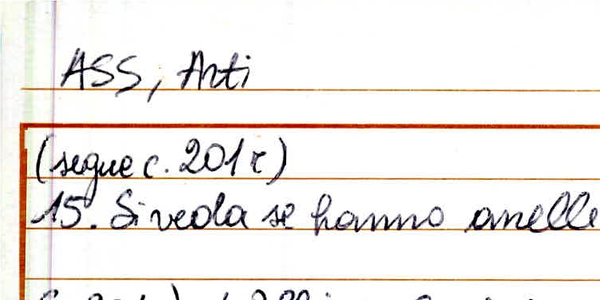 ASS, Arti
(segue c. 201r)
15. Si veda se hanno anelle